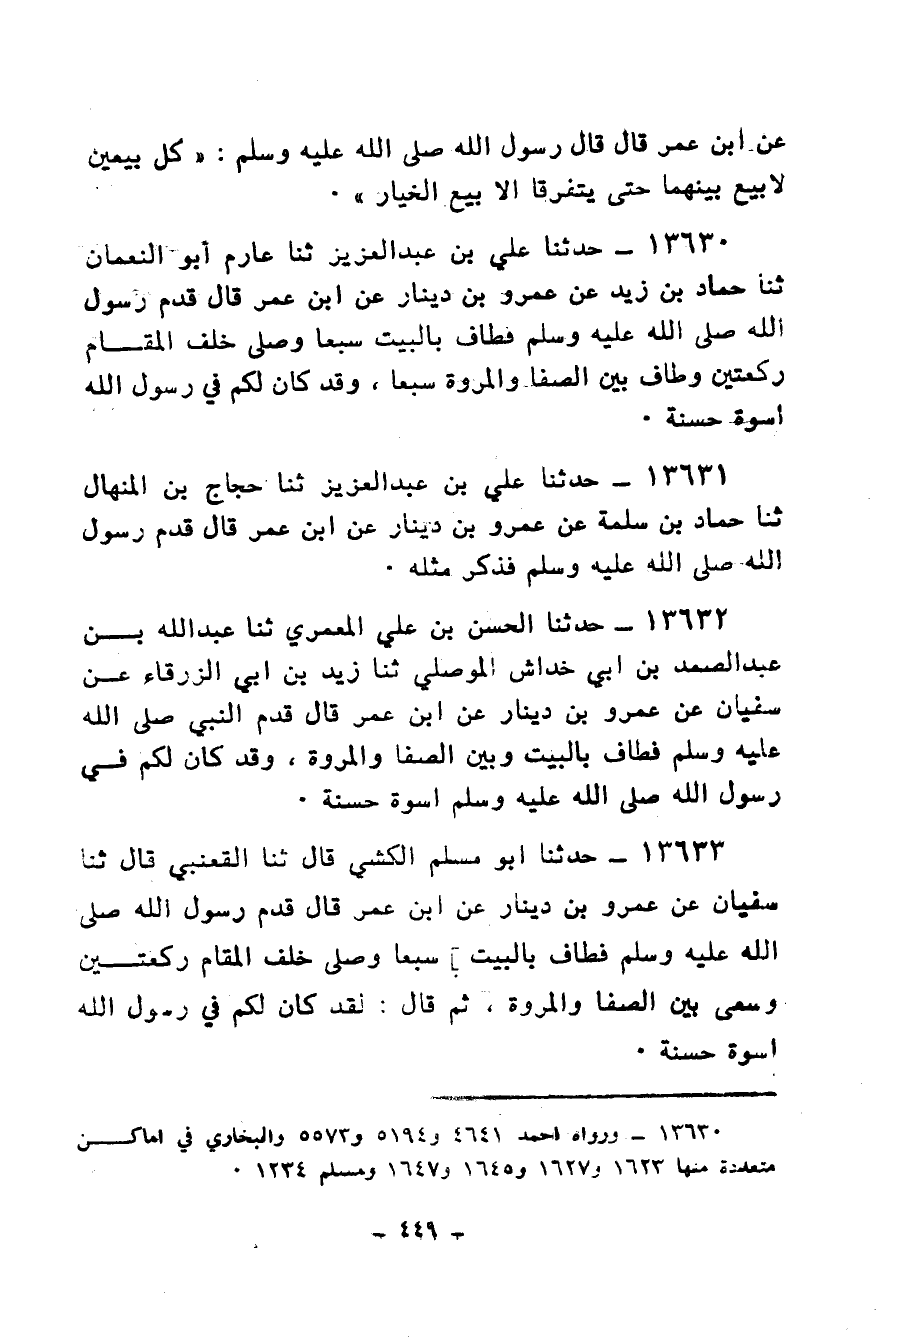 عن ابن عمر قال قال رسول الله صلى الله عليه وسلم : « كل بيعين
لابيع بينهما حتى يتفرقا الا بيع الخيار » ٠
١٣٦٣٠ ــ حدثنا علي بن عبدالعزيز ثنا عارم أبو النعمان
ثنا حماد بن زيد عن عمرو بن دينار عن ابن عمر قال قدم رسول
الله صلى الله عليه وسلم فطاف بالبيت سبعا وصلى خلف المقـــام
ركعتين وطاف بين الصفا والمروة سبعا ، وقد كان لكم في رسول الله
اسوة حسنة ٠
١٣٦٣١ ــ حدثنا علي بن عبدالعزيز ثنا حجاج بن المنهال
ثنا حماد بن سلمة عن عمرو بن دينار عن ابن عمر قال قدم رسول
الله صلى الله عليه وسلم فذكر مثله ٠
١٣٦٣٢ ــ حدثنا الحسن بن علي المعمري ثنا عبدالله بـــن
عبدالصمد بن ابي خداش الموصلي ثنا زيد بن ابي الزرقاء عـن
سفيان عن عمرو بن دينار عن ابن عمر قال قدم النبي صلى الله
عليه وسلم فطاف بالبيت وبين الصفا والمروة ، وقد كان لكم فـي
رسول الله صلى الله عليه وسلم اسوة حسنة ٠
١٣٦٣٣ ــ حدثنا ابو مسلم الكشي قال ثنا القعنبي قال ثنا
سفيان عن عمرو بن دينار عن ابن عمر قال قدم رسول الله صلى
الله عليه وسلم فطاف بالبيت ] سبعا وصلى خلف المقام ركعتـــين
وسعى بين الصفا والمروة ، ثم قال : لقد كان لكم في رسول الله
اسوة حسنة ٠
١٣٦٣٠ ــ ورواه احمد ٤٦٤١ و٥١٩٤ و٥٥٧٣ والبخاري في اماكـــن
متعددة منها ١٦٢٣ و١٦٢٧ و١٦٤٥ و١٦٤٧ ومسلم ١٢٣٤ ٠
ــ ٤٤٩ ــ